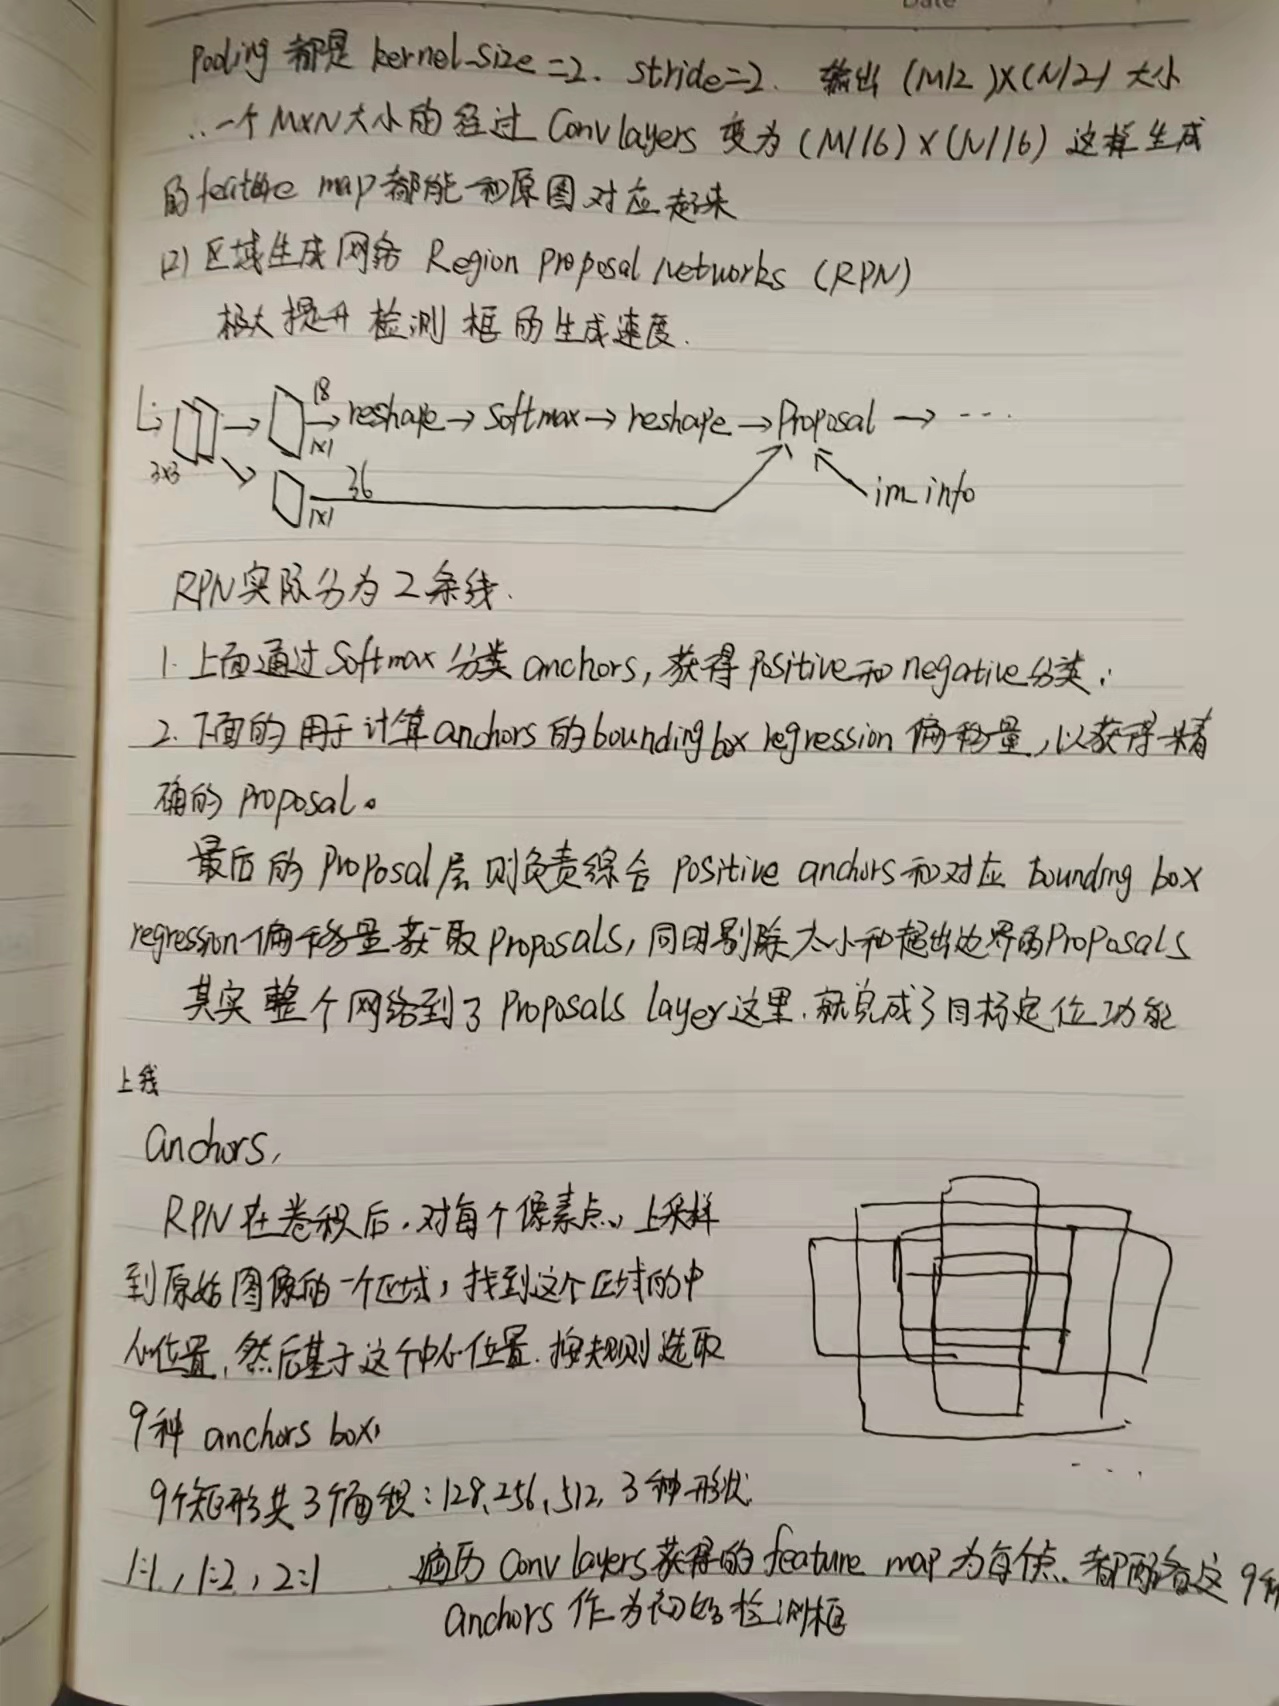 Date
Pooling 都是 kernel_size=2. stride=2. 输出 (M/2)X(N/2) 大小
∴一个MXN大小的 经过 Conv layers 变为 (M/16) X (N/16) 这样生成
的 feature map 都能和原图对应起来
(2) 区域生成网络 Region Proposal Networks (RPN)
极大提升检测框的生成速度.
3x3 → 18 1x1 → reshape → Softmax → reshape → Proposal → ...
36 1x1
im_info
RPN实际分为2条线.
1. 上面通过Softmax分类anchors, 获得Positive和negative分类;
2. 下面的用于计算anchors的bounding box regression偏移量, 以获得精
确的 Proposal。
最后的 Proposal层则负责综合 Positive anchors和对应 bounding box
regression偏移量获取Proposals, 同时剔除太小和超出边界的Proposals
其实整个网络到了 Proposals layer这里. 就完成了目标定位功能
上线
anchors,
RPN在卷积后, 对每个像素点, 上采样
到原始图像的一个区域, 找到这个区域的中
心位置, 然后基于这个中心位置. 按规则选取
9种 anchors box,
9个矩形共3个面积: 128, 256, 512, 3种形状
1:1, 1:2, 2:1 遍历 Conv layers获得的 feature map 为每个点 都配备这9种
anchors 作为初始检测框